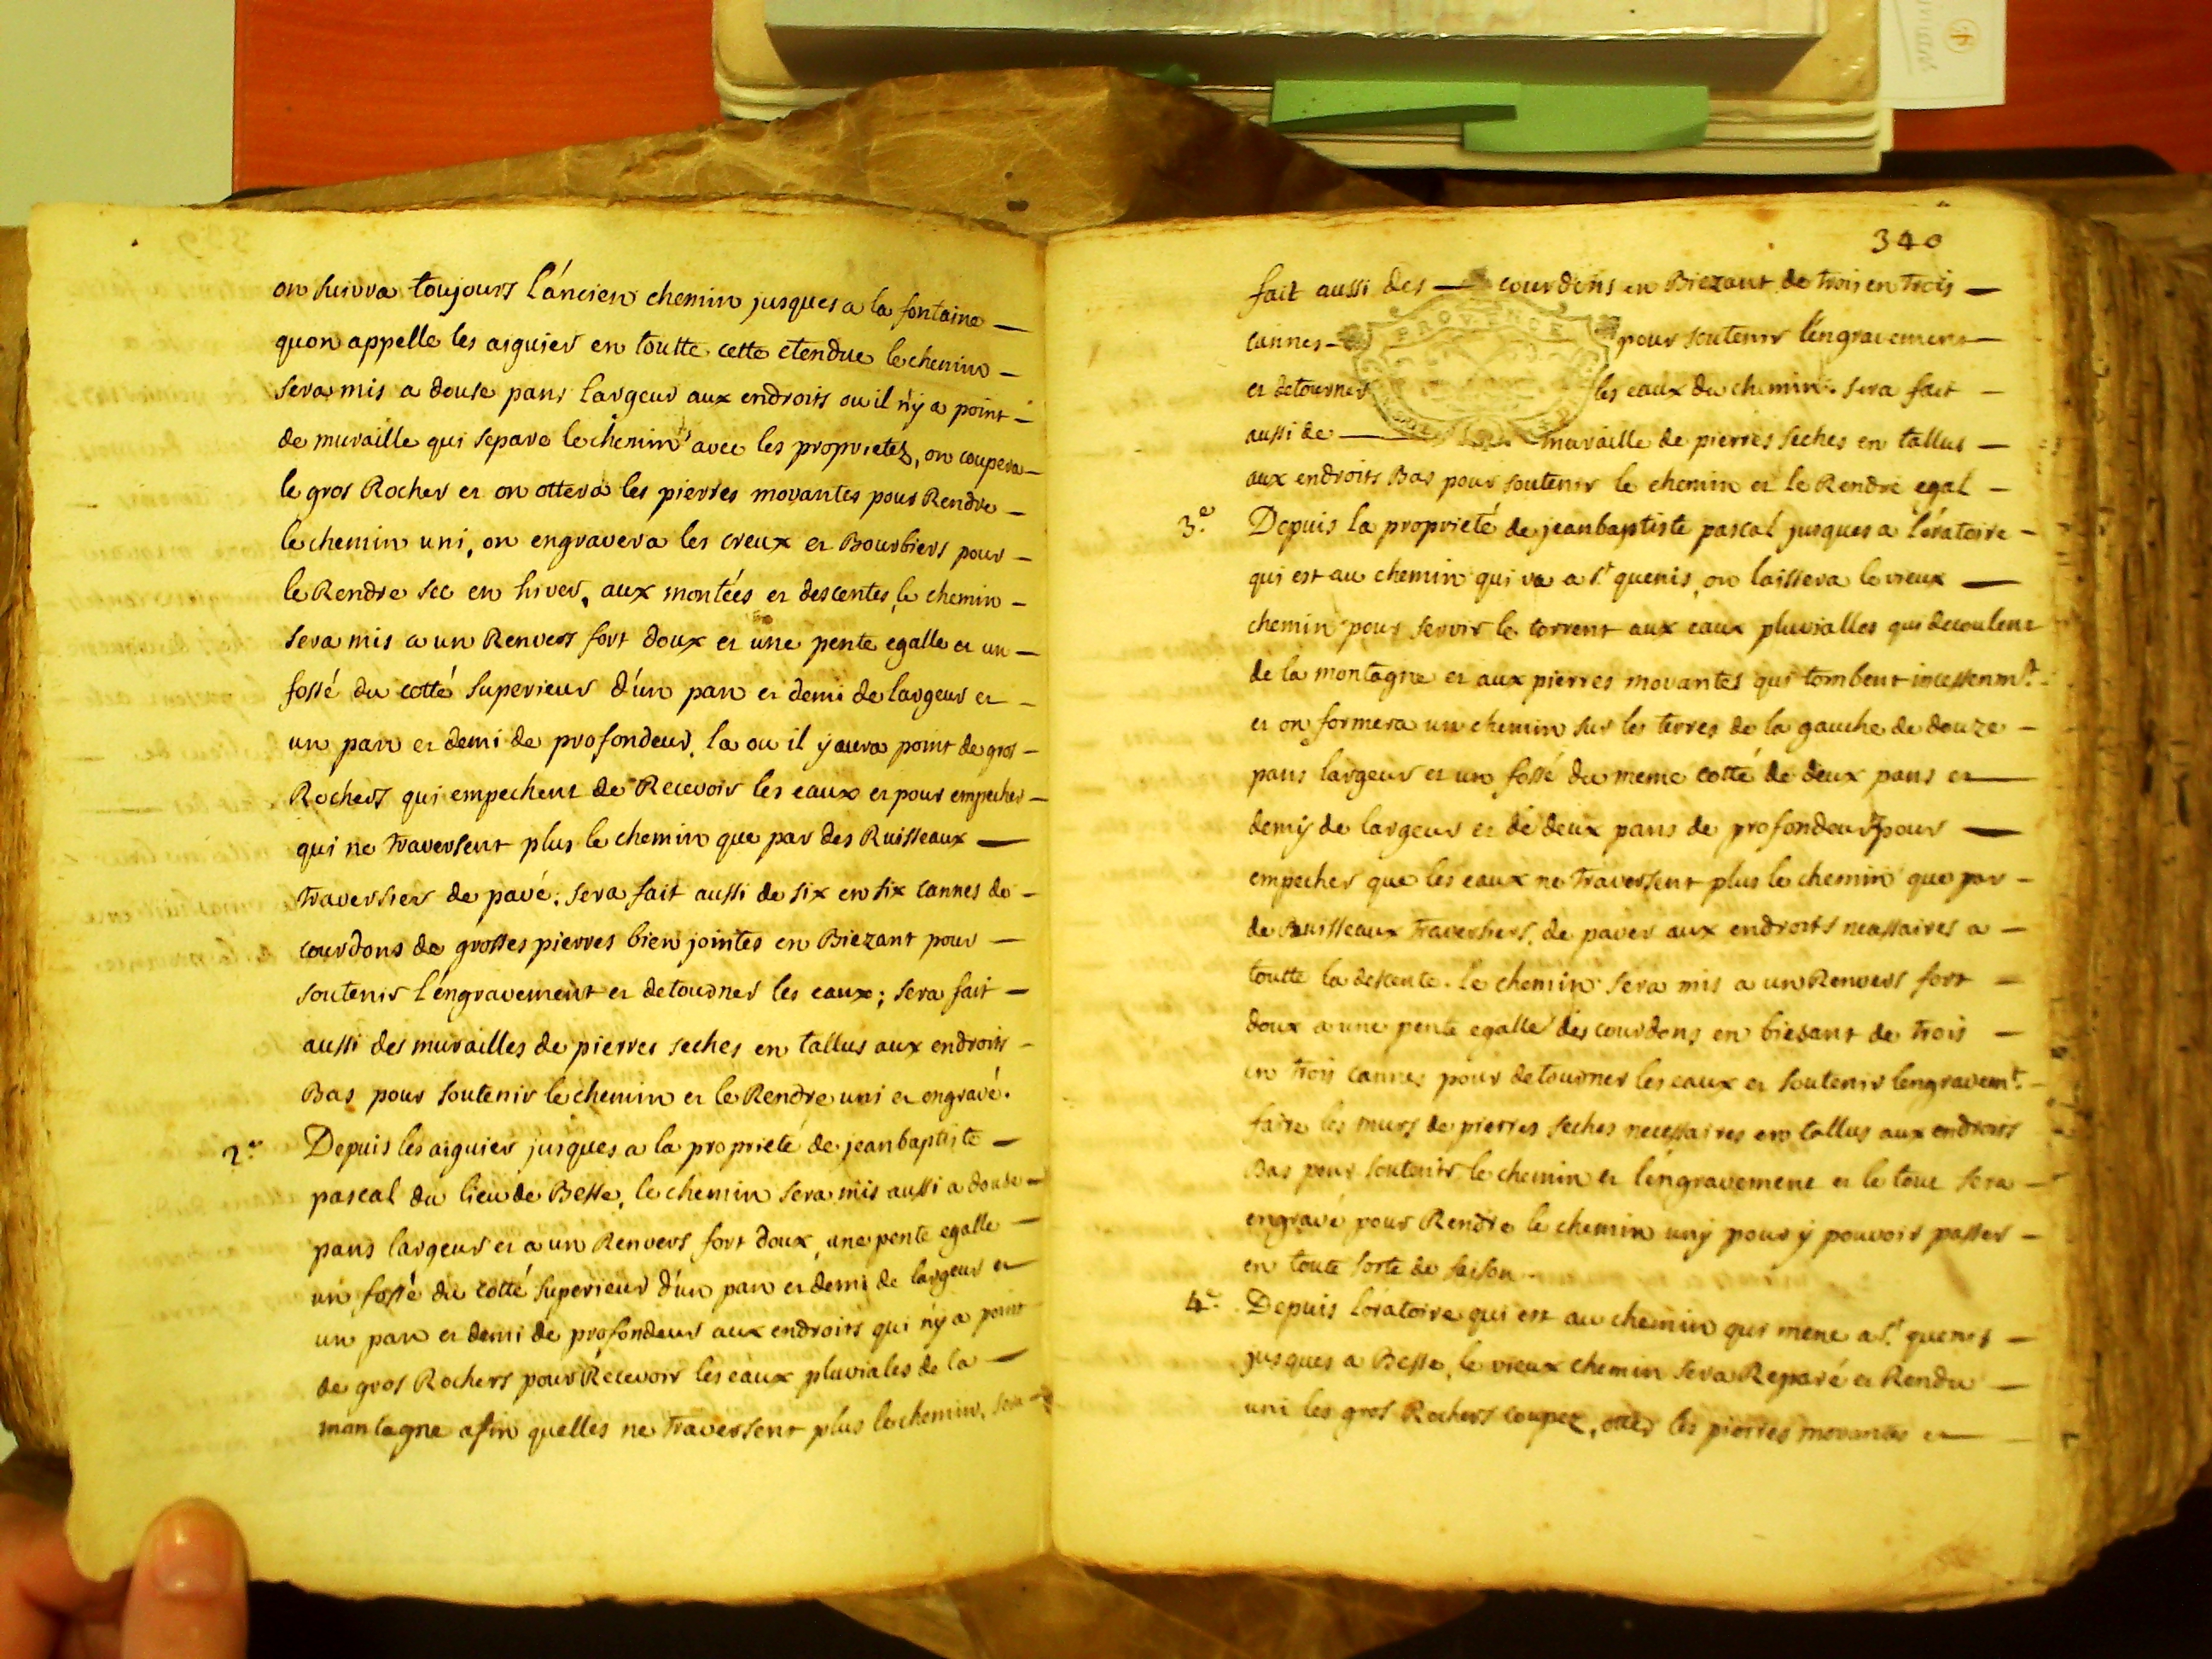 on suivra toujours l'ancien chemin jusques a la fontaine
quon appelle les aiguier en toutte cette etendue le chemin
sera mis a douse pans largeur aux endroits ou il n'y a point
de muraille qui separe le chemin avec les proprietez, on coupera
le gros Rocher et on ottera les pierres movantes pour Rendre
le chemin uni, on engravera les creux et Bourbiers pour
le Rendre sec en hiver, aux montées et descentes le chemin
sera mis a un Renvers fort doux et une pente egalle et un
fossé du cotté superieur d'un pan et demi de largeur et
un pan et demi de profondeur, la ou il y aura point de gros
Rochers qui empechent de Recevoir les eaux et pour empecher
qui ne traversent plus le chemin que par des Ruisseaux
traversier de pavé; sera fait aussi de six en six cannes de
courdons de grosses pierres bien jointes en Biezant pour
soutenir l'engravement et detourner les eaux; sera fait
aussi des murailles de pierres seches en tallus aux endroits
Bas pour soutenir le chemin et le Rendre uni et engravé.
2.e Depuis les aiguier jusques a la proprieté de jeanbaptiste
pascal du lieu de Besse, le chemin sera mis aussi a douse
pans largeur et a un Renvers fort doux, une pente egalle
un fossé du cotté superieur d'un pan et demi de largeur et
un pan et demi de profondeur aux endroits qui n'y a point
de gros Rochers pour Recevoir les eaux pluviales de la
montagne afin quelles ne traversent plus le chemin, sera
340
fait aussi des courdons en Biezant de trois en trois
cannes pour soutenir l'engravement
PROVENCE
et detourner les eaux du chemin. sera fait
aussi de muraille de pierres seches en tallus
aux endroits Bas pour soutenir le chemin et le Rendre egal
3.e Depuis la proprieté de jeanbaptiste pascal jusques a l'oratoire
qui est au chemin qui va a s.t quenis, on laissera le vieux
chemin pour servir le torrent aux eaux pluvialles qui decoulent
de la montagne et aux pierres movantes qui tombent incessenm.t
et on formera un chemin sur les terres de la gauche de douze
pans largeur et un fossé du meme cotté de deux pans et
demy de largeur et de deux pans de profondeur pour
empecher que les eaux ne traversent plus le chemin que par
de Ruisseaux traversiers, de paver aux endroits necessaires a
toutte la descente. le chemin sera mis a un Renvers fort
doux a une pente egalle des courdons en biesant de trois
en trois cannes pour detourner les eaux et soutenir lengravem.t
faire les murs de pierres seches necessaires en tallus aux endroits
Bas pour soutenir le chemin et l'engravement et le tout sera
engravé pour Rendre le chemin uny pour y pouvoir passer
en toute sorte de saison
4.e Depuis l'oratoire qui est au chemin qui mene a s.t quenis
jusques a Besse, le vieux chemin sera Reparé et Rendu
uni les gros Rochers coupez, otter les pierres movantes et